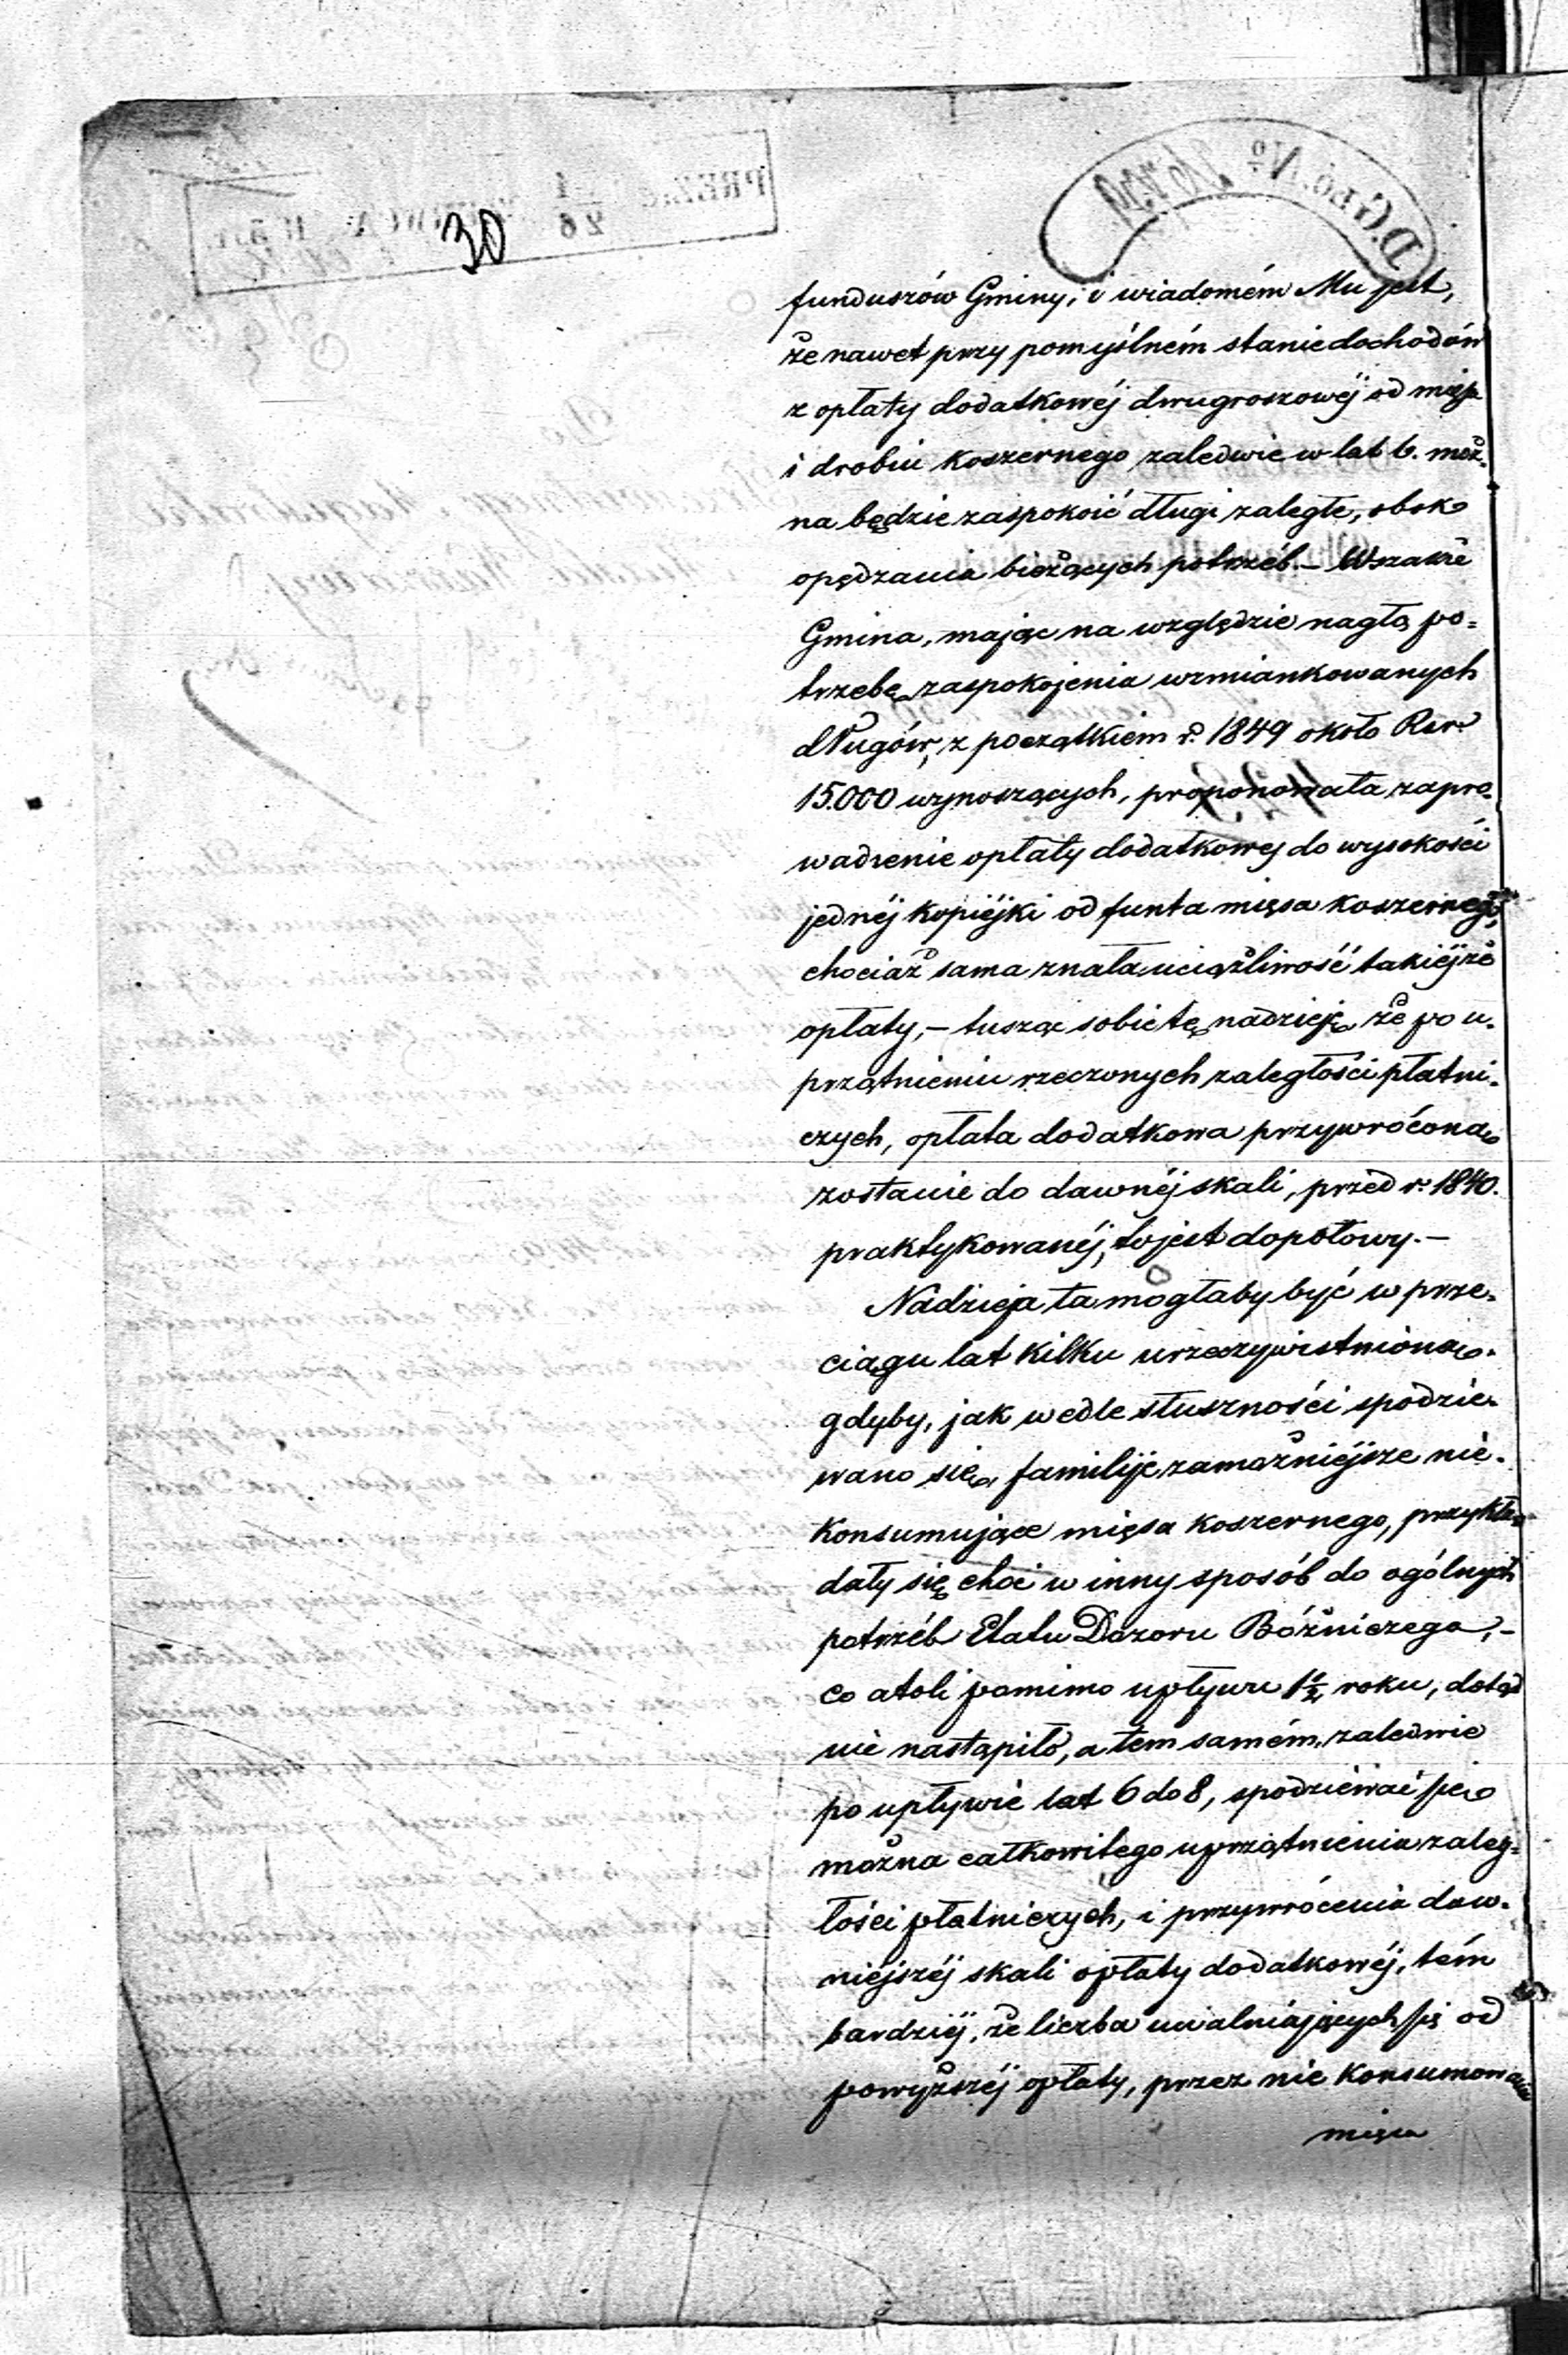 30
funduszów Gminy; i wiadomém Mu jest,
że nawet przy pomyślném stanie dochodów
z opłaty dodatkowéj dwugroszowéj od mięsa
i drobiu koszernego zaledwie w lat 6. moż-
na będzie zaspokoić długi zaległe, obok
opędzania bieżących potrzéb. — Wszakże
Gmina, mając na względzie nagłą po=
trzebę zaspokojenia wzmiankowanych
długów, z początkiem r. 1849 około Rsr.
15.000 wynoszących, proponowała zapro-
wadzenie opłaty dodatkowej do wysokości
jednéj kopiéjki od funta mięsa koszernego,
chociaż sama znała uciążliwość takiéjże
opłaty, — tusząc sobie tę nadzieję, że po u-
przątnieniu rzeczonych zaległości płatni-
czych, opłata dodatkowa przywróconą
zostanie do dawnéj skali, przed r. 1840.
praktykowanéj, to jest do połowy. —
Nadzieja ta mogłaby być w prze-
ciągu lat kilku urzeczywistnioną,
gdyby, jak wedle słuszności spodzie-
wano się, familije zamożniéjsze nie-
konsumujące mięsa koszernego, przykła-
dały się choć w inny sposób do ogólnych
potrzéb Etatu Dozoru Bóżniczego, —
co atoli pomimo upływu 1½ roku, dotąd
nie nastąpiło, a tem samém, zaledwie
po upływie lat 6 do 8, spodziéwać się
można całkowitego uprzątnienia zaleg-
łości płatniczych, i przywrócenia daw-
niéjszéj skali opłaty dodatkowéj, tém
bardziéj, że liczba uwalniających się od
powyższéj opłaty, przez nie konsumowanie
mięsa